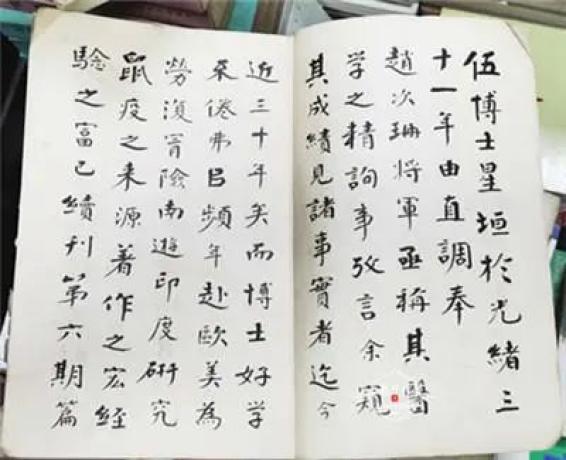 伍博士星垣於光緒三
十一年由直調奉
趙次珊將軍亟稱其醫
學之精詢事攷言余窺
其成績見諸事實者迄今
近三十年矣而博士好學
不倦弗㠯頻年赴歐美為
勞復冒險南遊印度研究
鼠疫之来源著作之宏經
驗之富已續刊第六期篇